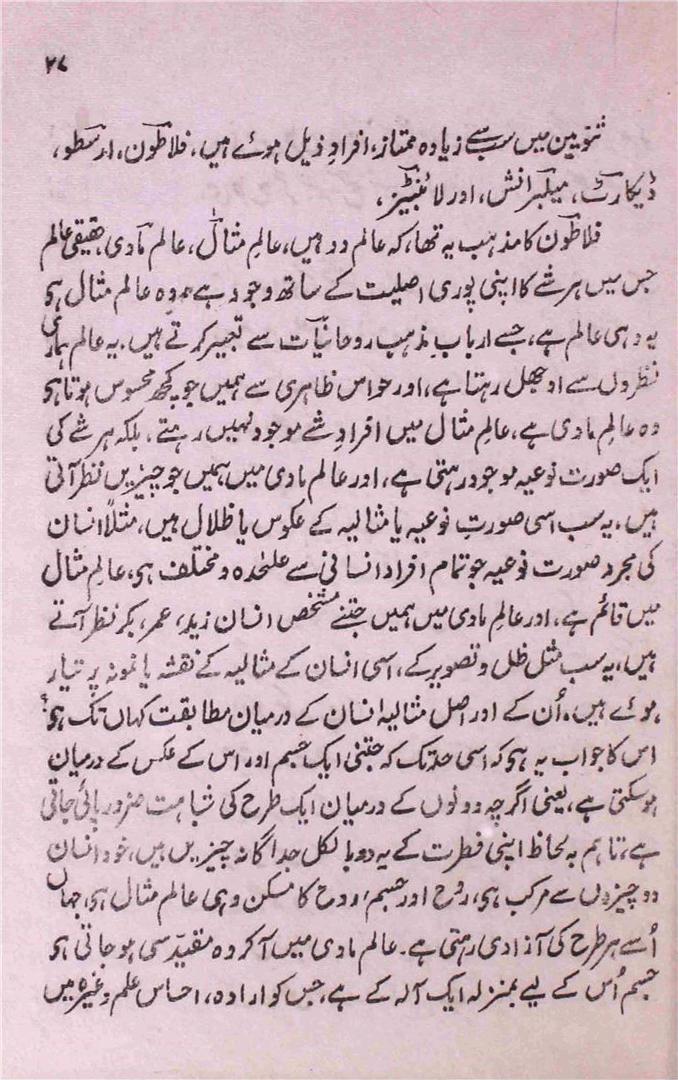 ۲۷
ثنویین میں سب سے زیادہ ممتاز، افراد ذیل ہوئے ہیں، فلاطون، ارسطو،
ڈیکارٹ، میلبرانش، اور لائبنیز،
فلاطون کا مذہب یہ تھا، کہ عالم دو ہیں، عالمِ مثال، عالم مادی، حقیقی عالم
جس میں ہر شے کا اپنی پوری اصلیت کے ساتھ وجود ہے، وہ عالم مثال ہی
یہ وہی عالم ہے، جسے ارباب مذہب روحانیات سے تعبیر کرتے ہیں۔ یہ عالم ہماری
نظروں سے اوجھل رہتا ہے، اور حواس ظاہری سے ہمیں جو کچھ محسوس ہوتا ہی
وہ عالمِ مادی ہے، عالمِ مثال میں افراد شے موجود نہیں رہتے، بلکہ ہر شے کی
ایک صورت نوعیہ موجود رہتی ہے، اور عالم مادی میں ہمیں جو چیزیں نظر آتی
ہیں، یہ سب اسی صورتِ نوعیہ یا مثالیہ کے عکوس یا ظلال ہیں، مثلاً انسان
کی مجرد صورت نوعیہ جو تمام افراد انسانی سے علٰحدہ و مختلف ہی، عالمِ مثال
میں قائم ہے، اور عالمِ مادی میں ہمیں جتنے مشخص انسان زید، عمر، بکر نظر آتے
ہیں، یہ سب مثل ظل و تصویر کے، اسی انسان کے مثالیہ کے نقشہ یا نمونہ پر تیار
ہوئے ہیں۔ اُن کے اور اصل مثالیہ انسان کے درمیان مطابقت کہاں تک ہی؟
اس کا جواب یہ ہی کہ اسی حد تک کہ جتنی ایک جسم اور اس کے عکس کے درمیان
ہوسکتی ہے، یعنی اگرچہ دونوں کے درمیان ایک طرح کی شباہت ضرور پائی جاتی
ہے، تاہم بہ لحاظ اپنی فطرت کے یہ دو بالکل جداگانہ چیزیں ہیں، خود انسان
دو چیزوں سے مرکب ہی، روح اور جسم، روح کا مسکن وہی عالم مثال ہی، جہاں
اُسے ہر طرح کی آزادی رہتی ہے۔ عالم مادی میں آکر وہ مقید سی ہو جاتی ہی
جسم اُس کے لیے بمنزلہ ایک آلہ کے ہے، جس کو ارادہ، احساس علم وغیرہ میں